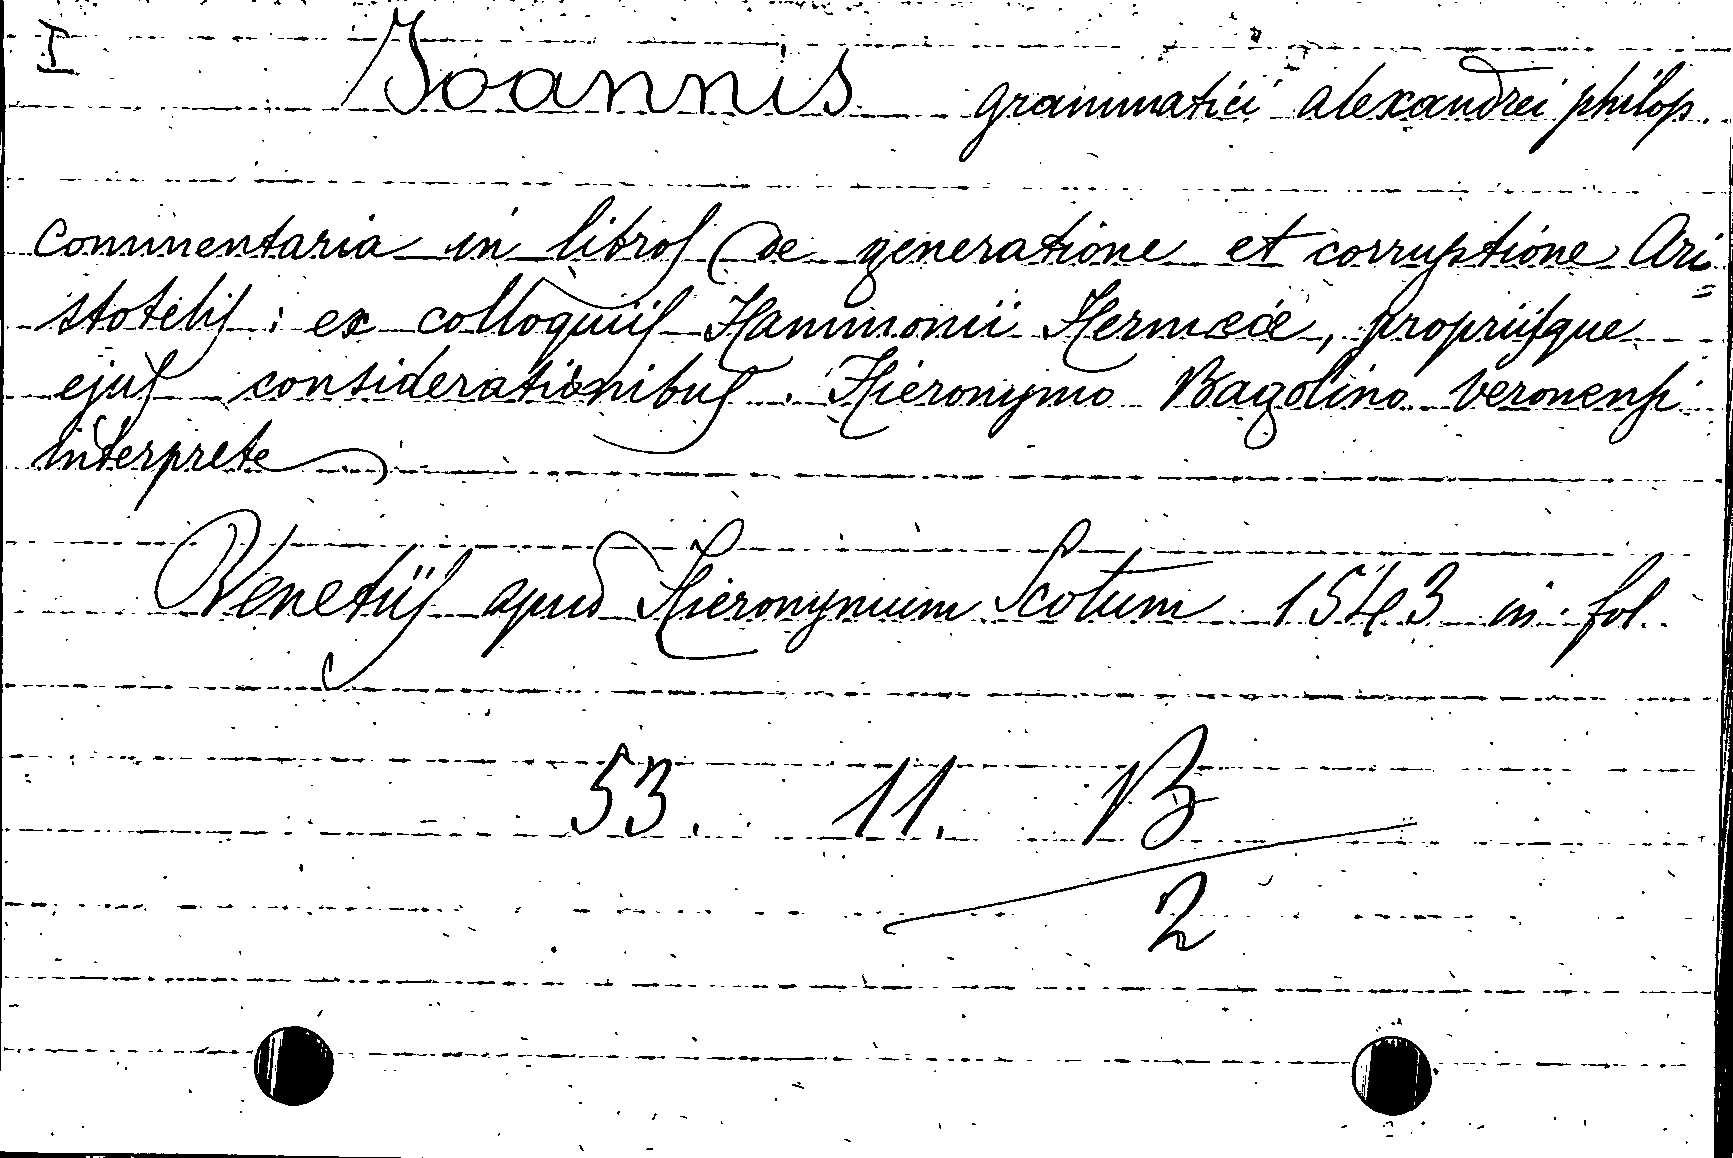 I
Joannis grammatici alexandrei philop.
Commentaria in libros de generatione et corruptione Ari=
stotelis : ex colloquiis Hammonii Hermeæ, propriisque
ejus considerationibus . Hieronymo Bagolino veronensi
interprete
Venetiis apud Hieronymum Scotum 1543 in fol.
53. 11. B
2